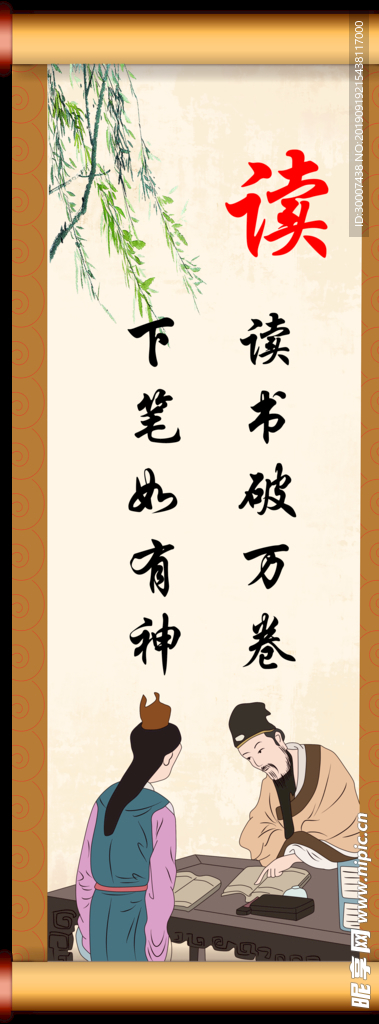 读
读书破万卷
下笔如有神
ID:30007438 NO:20190919215438117000
昵享网 www.nipic.cn